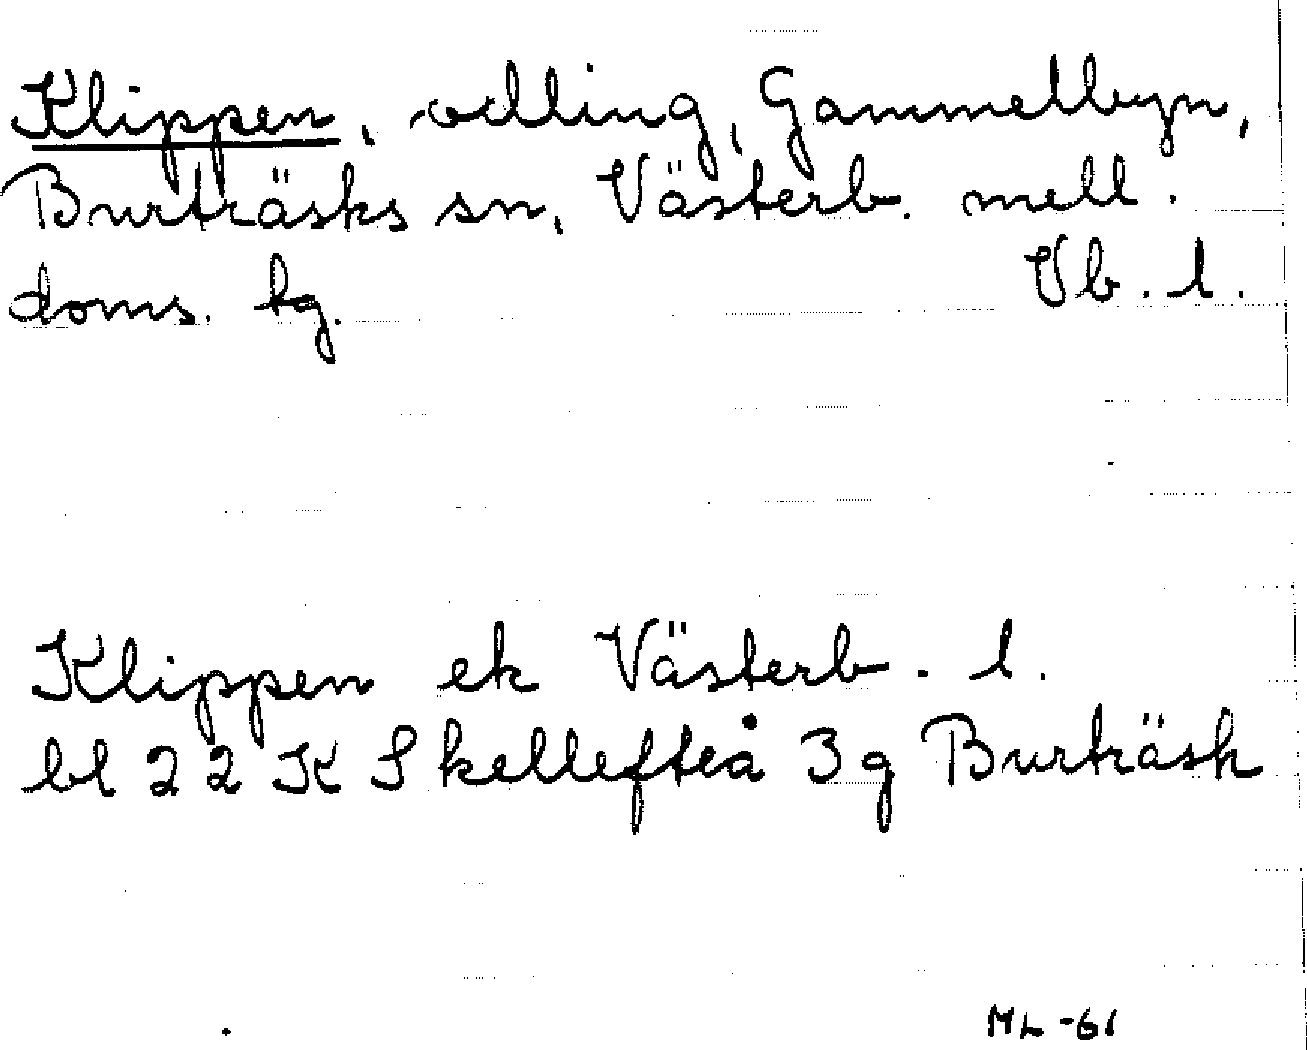 Klippen, odling, Gammelbyn,
Burträsks sn, Västerb. mell.
doms. tg. Vb. l.
Klippen ek Västerb. l.
bl 22 K Skellefteå 3g Burträsk
ML -61